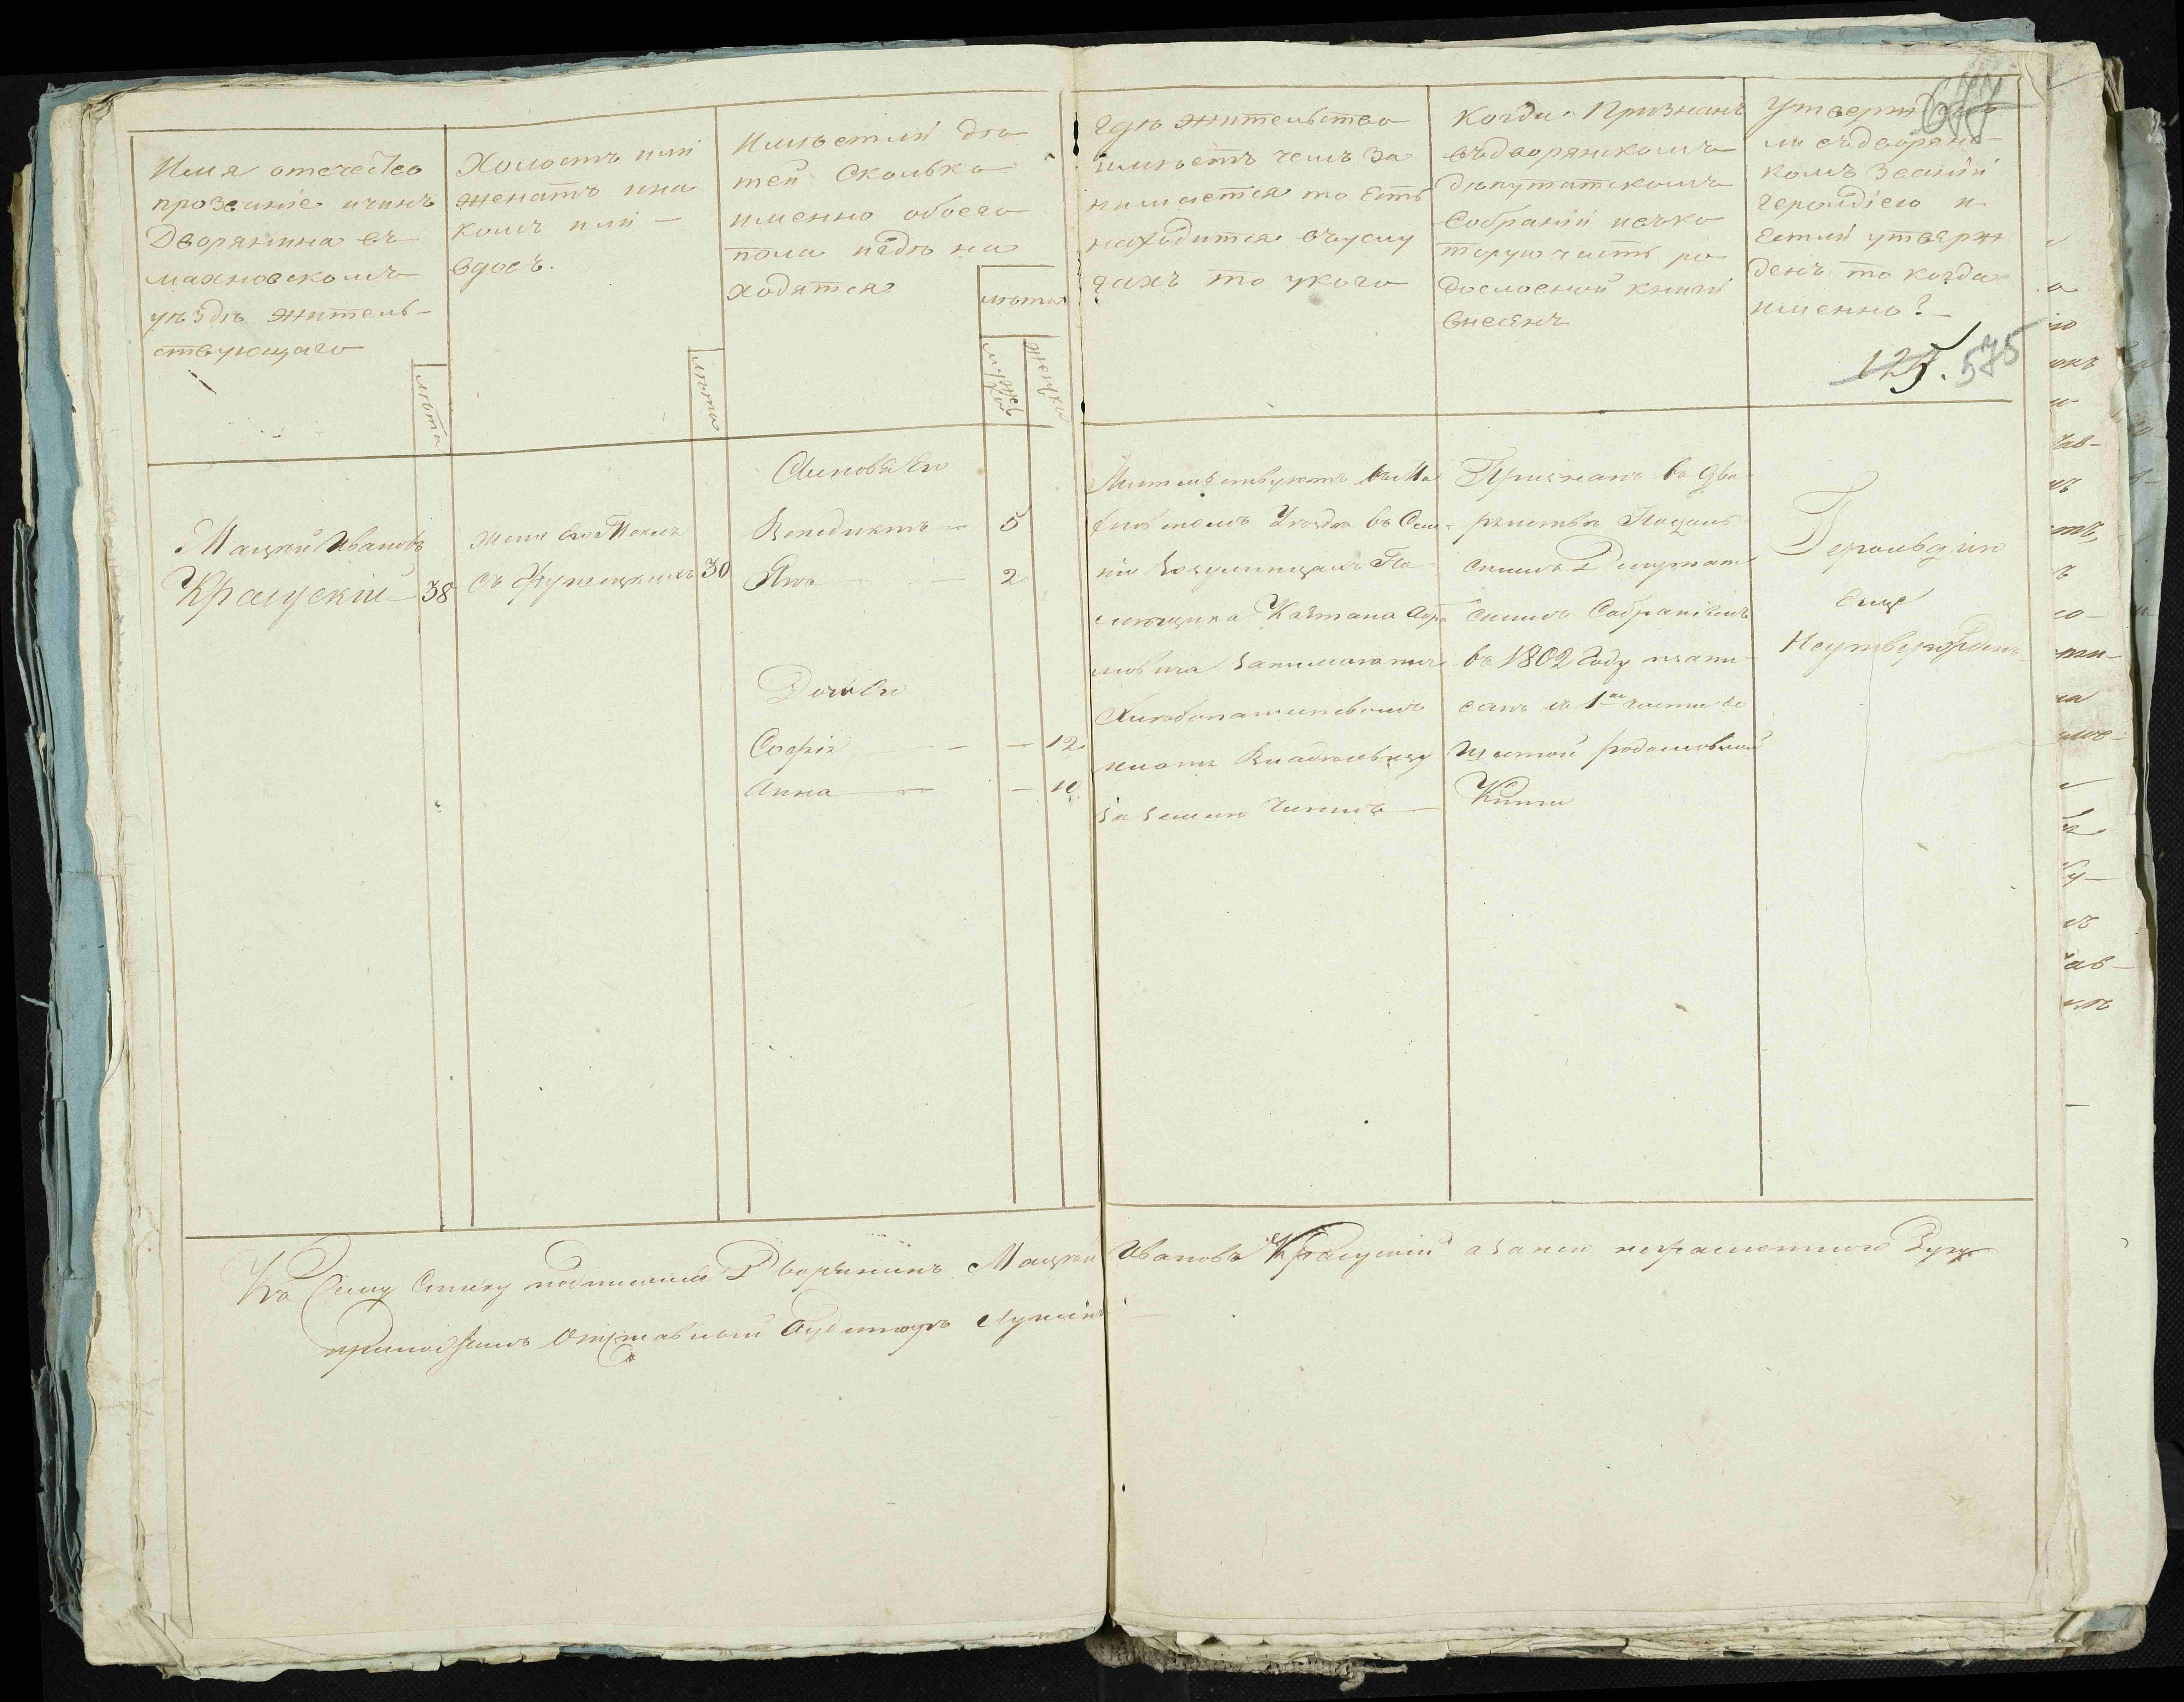 Имя отечество
прозвание ичинъ
Дворянина въ
махновскомъ
уѣздѣ жителъ-
ствующаго
лѣта
Холостъ или
женатъ ина
комъ или —
вдовъ.
лѣта
Имѣетли дѣ
тей Сколько
именно обоего
пола игдѣ на
ходятся
лѣта
мужеска
женска
гдѣ жительство
имѣетъ чемъ за
нимается то есть
находится въуслу
гахъ то укого
Когда Признанъ
въдворянскомъ
дѣпутатскомъ
Собраніи ивъко
торую часть ро
дословной книги
внесенъ
Утвержденъ
ли въдворянс
комъ званіи
герольдіею и
Естли утверж
денъ то когда
именно?
677
125. 575
Мацѣй Ивановъ
Краускій 38
жена Его Текля
съ 30
Сыновья Ево
Венедиктъ — 5
Янъ — 2
Дочь Ево
Софія — — 12
Анна — — 10
Жительствуютъ въ Ма
хновскомъ Уездѣ въ Селе
ніи По
мѣщика Каэтана
занимается
Хлебопашествомъ
платя Владельцу
за землю Чиншъ
Признанъ въ Дво
рянствѣ Подоль
скимъ Депутат
скимъ Собраніемъ
въ 1802 Году изапи
санъ въ 1ю части во
шестой родословной
Книги
Герольдіи
еще
Неутвержденъ
Къ Сему Списку подписался Дворянинъ Мацѣй Ивановъ Краускій азанею неграмотнаго Руку
приложилъ Отставный